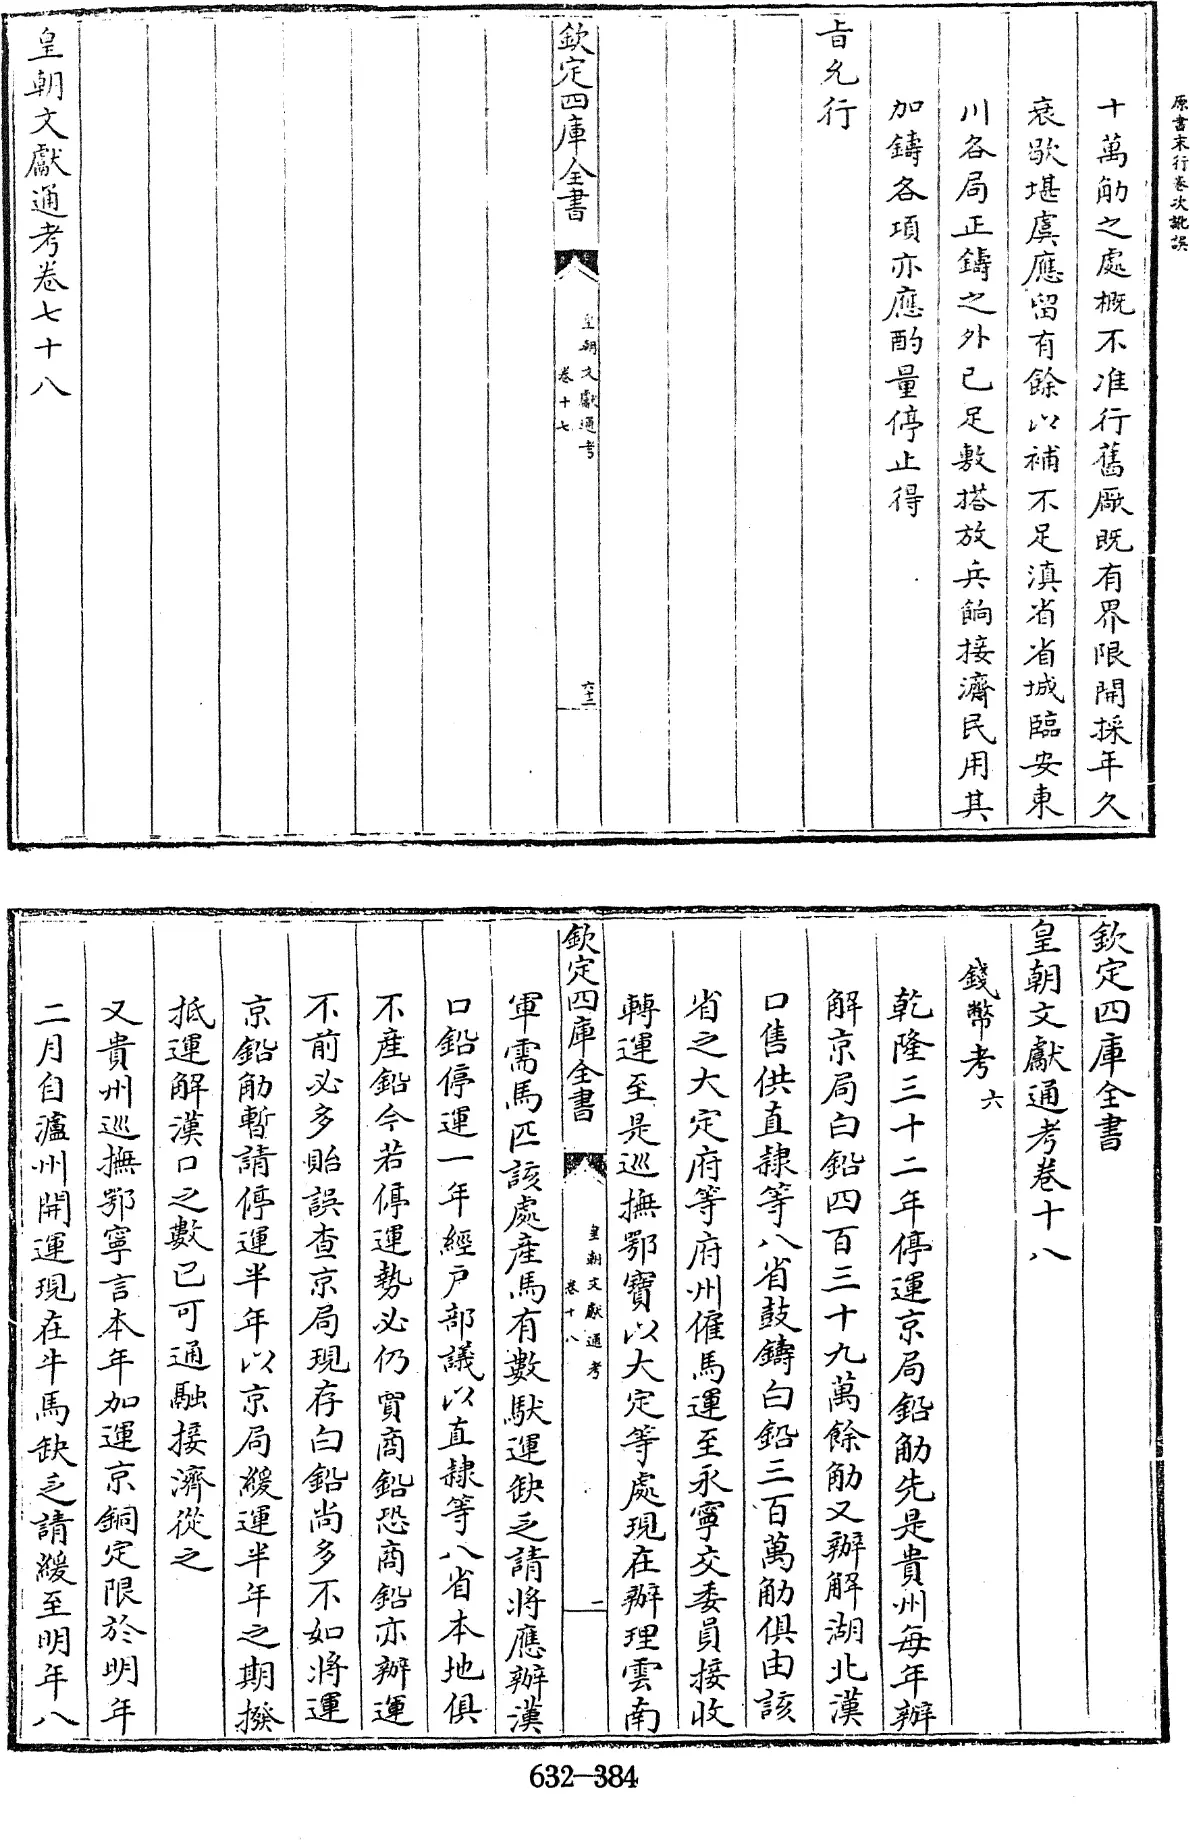 原書末行卷次訛誤
十萬觔之處概不准行舊厰既有界限開採年久
衰歇堪虞應留有餘以補不足滇省省城臨安東
川各局正鑄之外已足敷搭放兵餉接濟民用其
加鑄各項亦應酌量停止得
旨允行
欽定四庫全書
皇朝文獻通考
卷十七
六十二
皇朝文獻通考卷七十八
欽定四庫全書
皇朝文獻通考卷十八
錢幣考六
乾隆三十二年停運京局鉛觔先是貴州每年辦
解京局白鉛四百三十九萬餘觔又辦解湖北漢
口售供直隷等八省鼓鑄白鉛三百萬觔俱由該
省之大定府等府州僱馬運至永寧交委員接收
轉運至是巡撫鄂寶以大定等處現在辦理雲南
欽定四庫全書
皇朝文獻通考
卷十八
軍需馬匹該處産馬有數馱運缺乏請將應辦漢
口鉛停運一年經戸部議以直隷等八省本地俱
不産鉛今若停運勢必仍買商鉛恐商鉛亦辦運
不前必多貽誤查京局現存白鉛尚多不如將運
京鉛觔暫請停運半年以京局緩運半年之期撥
抵運解漢口之數已可通融接濟從之
又貴州巡撫鄂寧言本年加運京銅定限於明年
二月自瀘州開運現在牛馬缺乏請緩至明年八
632-384